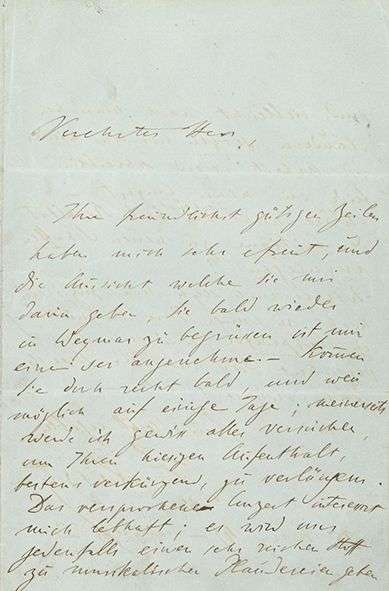 Verehrter Herr,
Ihre freundlichst gütigen Zeilen
haben mich sehr erfreut, und
die Aussicht welche sie mir
darin geben, sie bald wieder
in Weymar zu begrüssen ist mir
eine ser angenehme. – Kommen
sie doch recht bald, und wen
möglich auf einige Tage; meinerseits
werde ich gewis alles versuchen,
um Ihnen hiesigen Aufenthalt,
bestens verkürzend, zu verlängern.
Das versprochene interessirt
mich lebhaft; es wird uns
jedenfalls einen sehr reichen Stoff
zu musikalischen Plaudereien geben